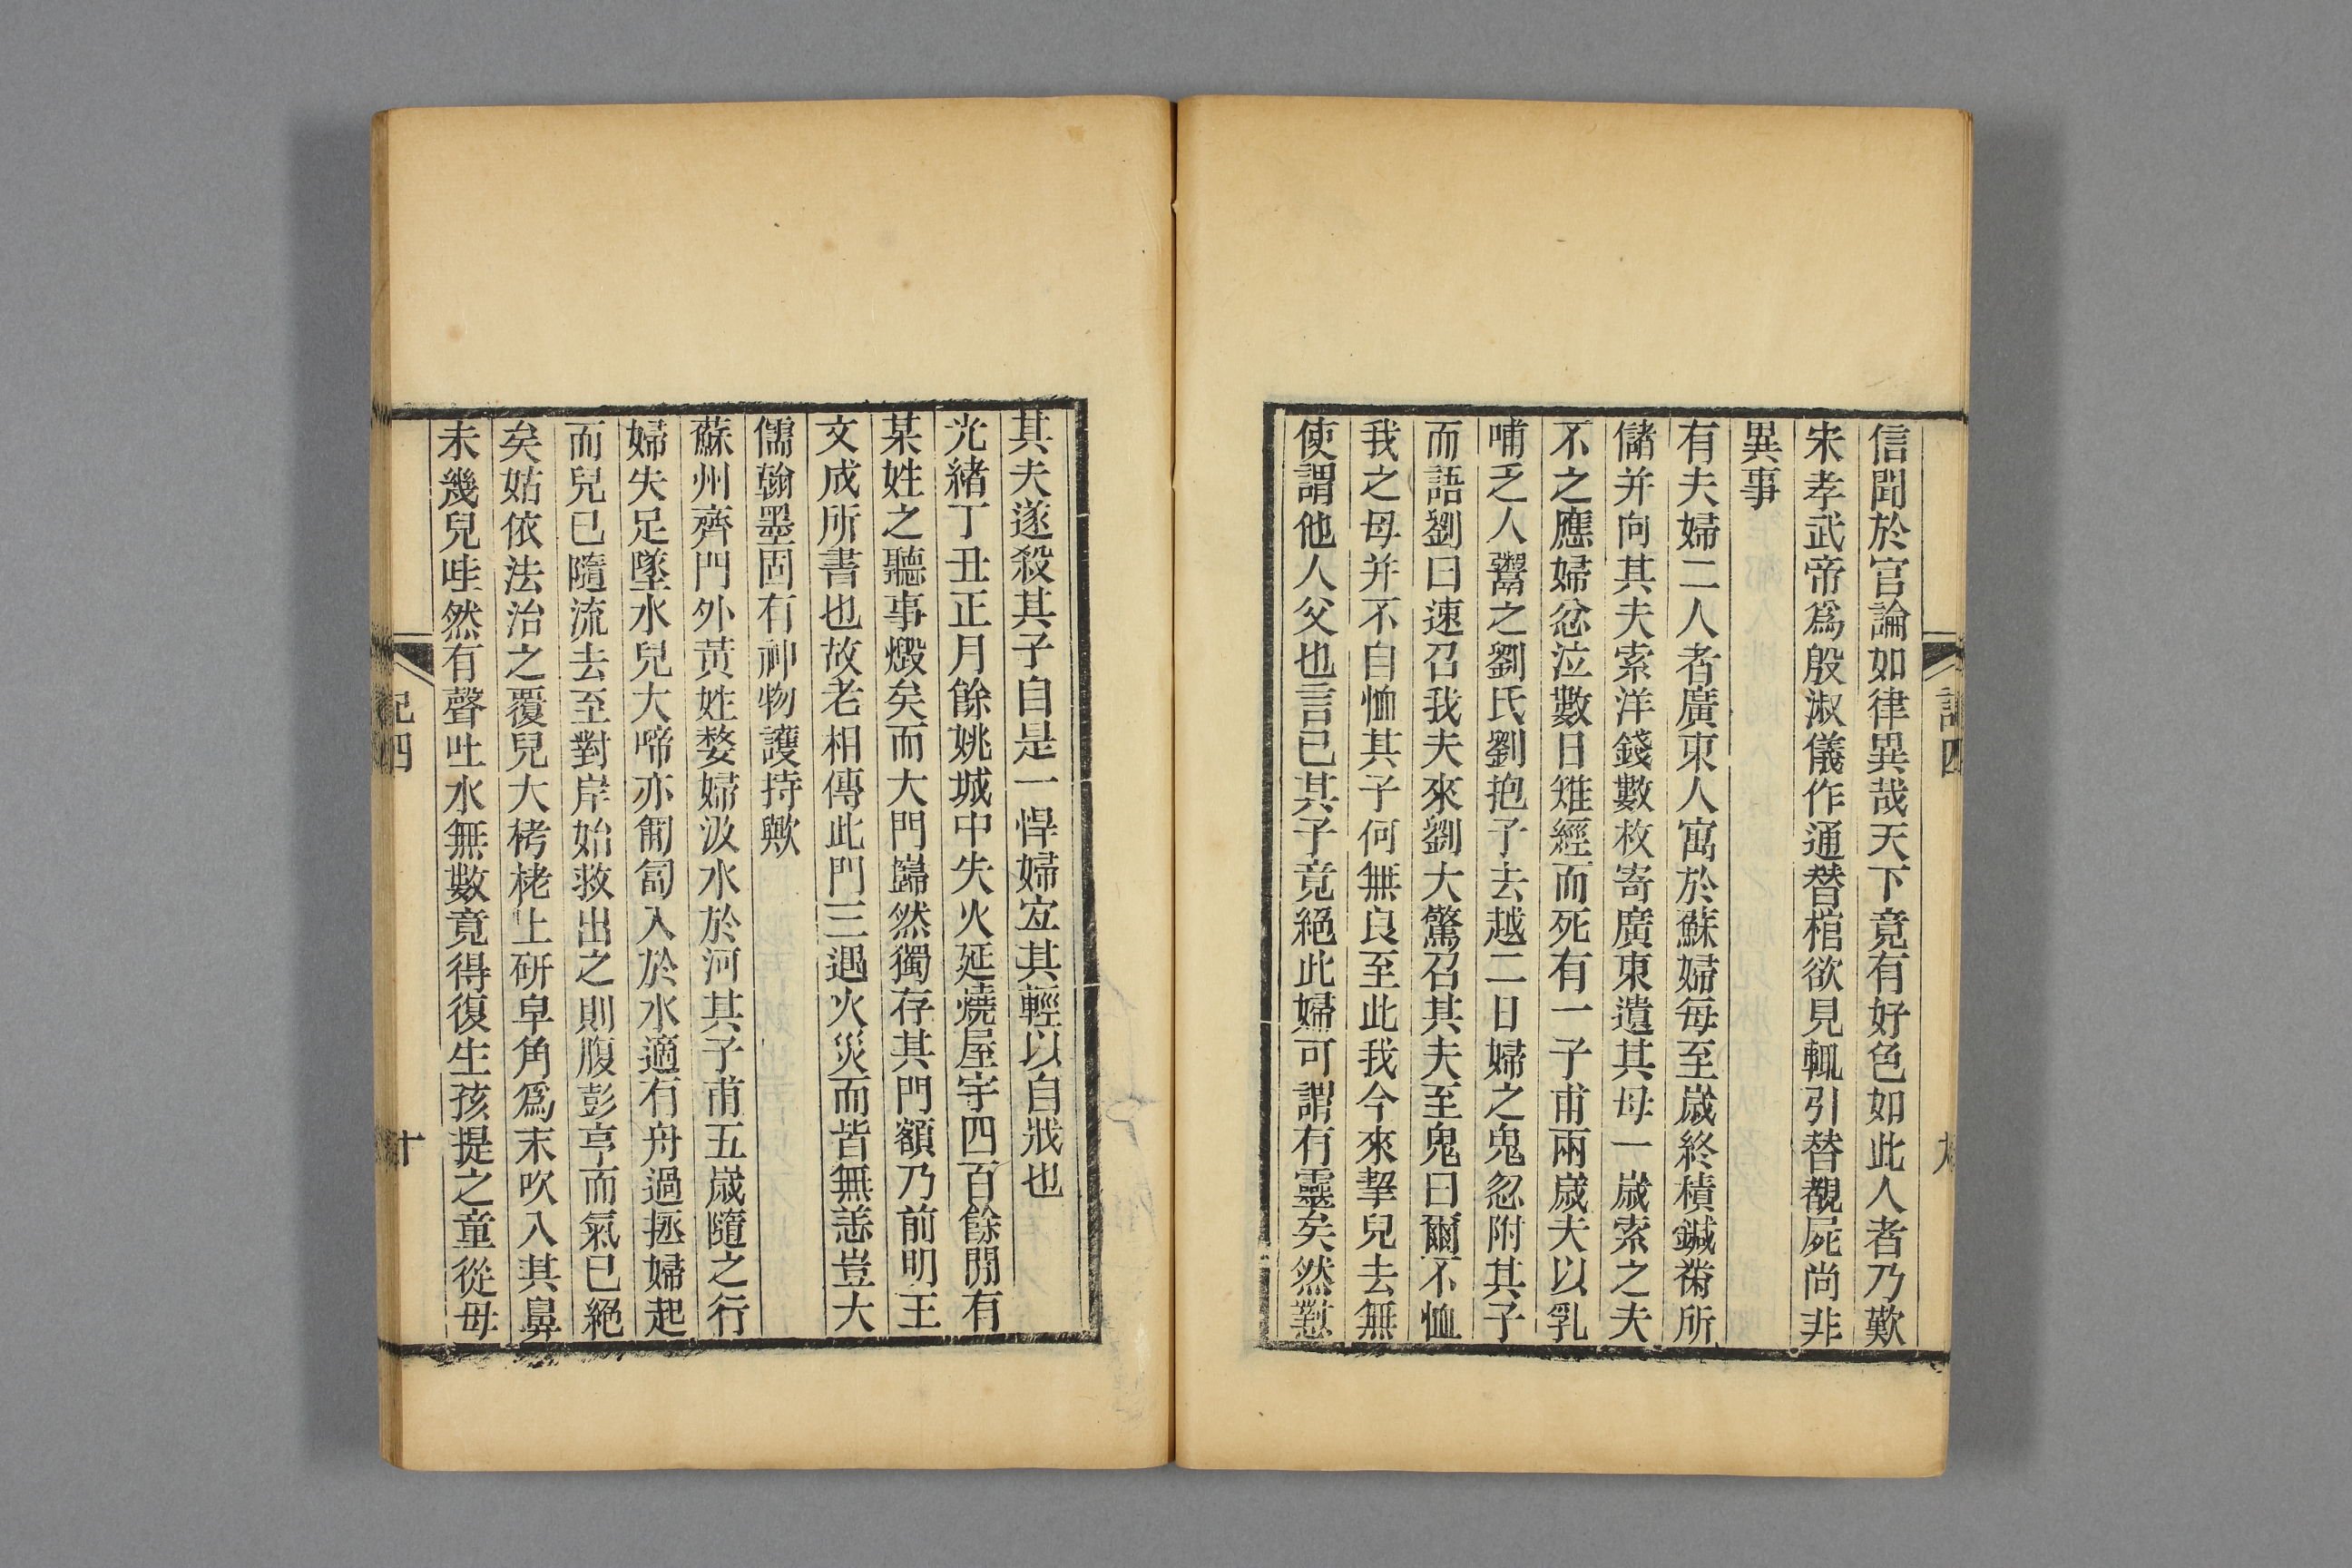 信聞於官論如律異哉天下竟有好色如此人者乃歎
宋孝武帝爲殷淑儀作通替棺欲見輒引替覩屍尚非
異事
有夫婦二人者廣東人寓於蘇婦每至歲終積鍼黹所
儲并向其夫索洋錢數枚寄廣東遺其母一歲索之夫
不之應婦忿泣數日雉經而死有一子甫兩歲夫以乳
哺乏人鬻之劉氏劉抱子去越二日婦之鬼忽附其子
而語劉曰速召我夫來劉大驚召其夫至鬼曰爾不恤
我之母并不自恤其子何無良至此我今來挈兒去無
使謂他人父也言已其子竟絕此婦可謂有靈矣然懟
其夫遂殺其子自是一悍婦宐其輕以自戕也
光緒丁丑正月餘姚城中失火延燒屋宇四百餘閒有
某姓之聽事燬矣而大門巋然獨存其門額乃前明王
文成所書也故老相傳此門三遇火災而皆無恙豈大
儒翰墨固有神物護持歟
蘇州齊門外黃姓婺婦汲水於河其子甫五歲隨之行
婦失足墜水兒大啼亦匍匐入於水適有舟過拯婦起
而兒已隨流去至對岸始救出之則腹彭亨而氣已絕
矣姑依法治之覆兒大栲栳上研皁角爲末吹入其鼻
未幾兒哇然有聲吐水無數竟得復生孩提之童從母
記四
十